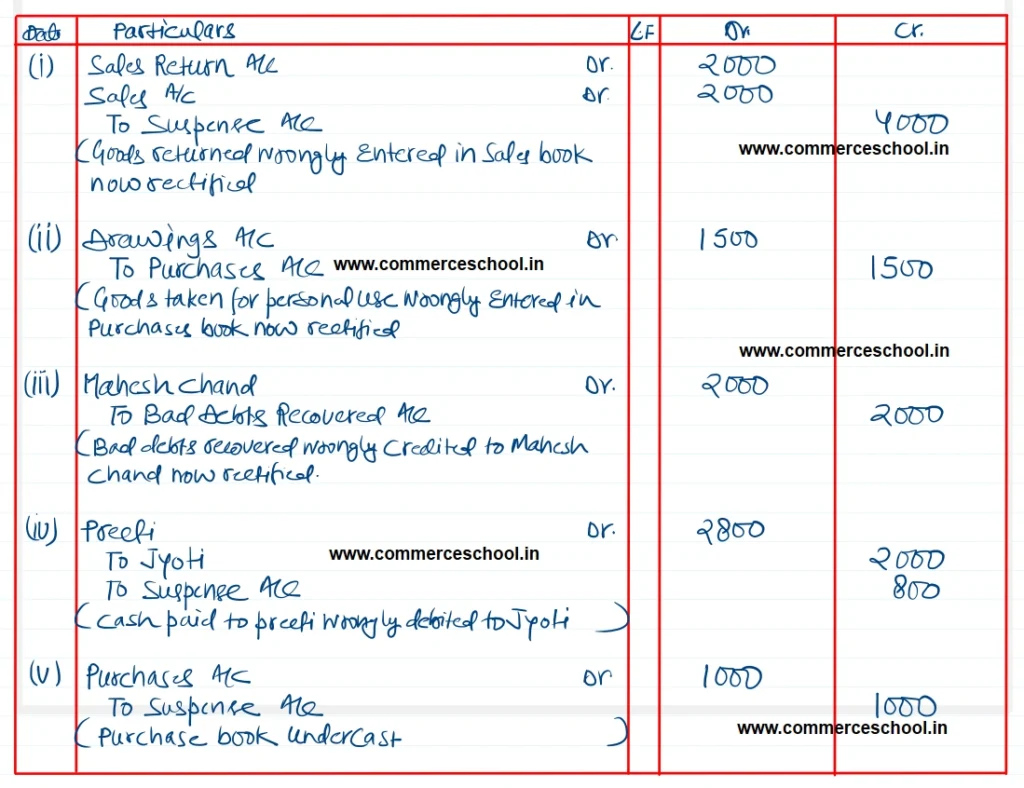 Date Particulars LF Dr. Cr.
(i) Sales Return A/c Dr. 2000
Sales A/c Dr. 2000
To Suspense A/c 4000
(Goods returned wrongly Entered in Sales book www.commerceschool.in
now rectified
(ii) Drawings A/c Dr 1500
To Purchases A/c www.commerceschool.in 1500
(Goods taken for personal use wrongly Entered in
Purchases book now rectified
www.commerceschool.in
(iii) Mahesh Chand Dr. 2000
To Bad Debts Recovered A/c 2000
(Bad debts recovered wrongly Credited to Mahesh
Chand now rectified.
(iv) Preeti Dr. 2800
To Jyoti www.commerceschool.in 2000
To Suspense A/c 800
(Cash paid to preeti wrongly debited to Jyoti )
(v) Purchases A/c Dr 1000
To Suspense A/c 1000
(Purchase book Undercast ) www.commerceschool.in